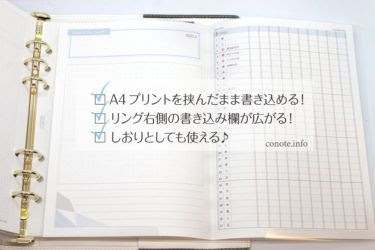 A4プリントを挟んだまま書き込める!
リング右側の書き込み欄が広がる!
しおりとしても使える♪
conote.info